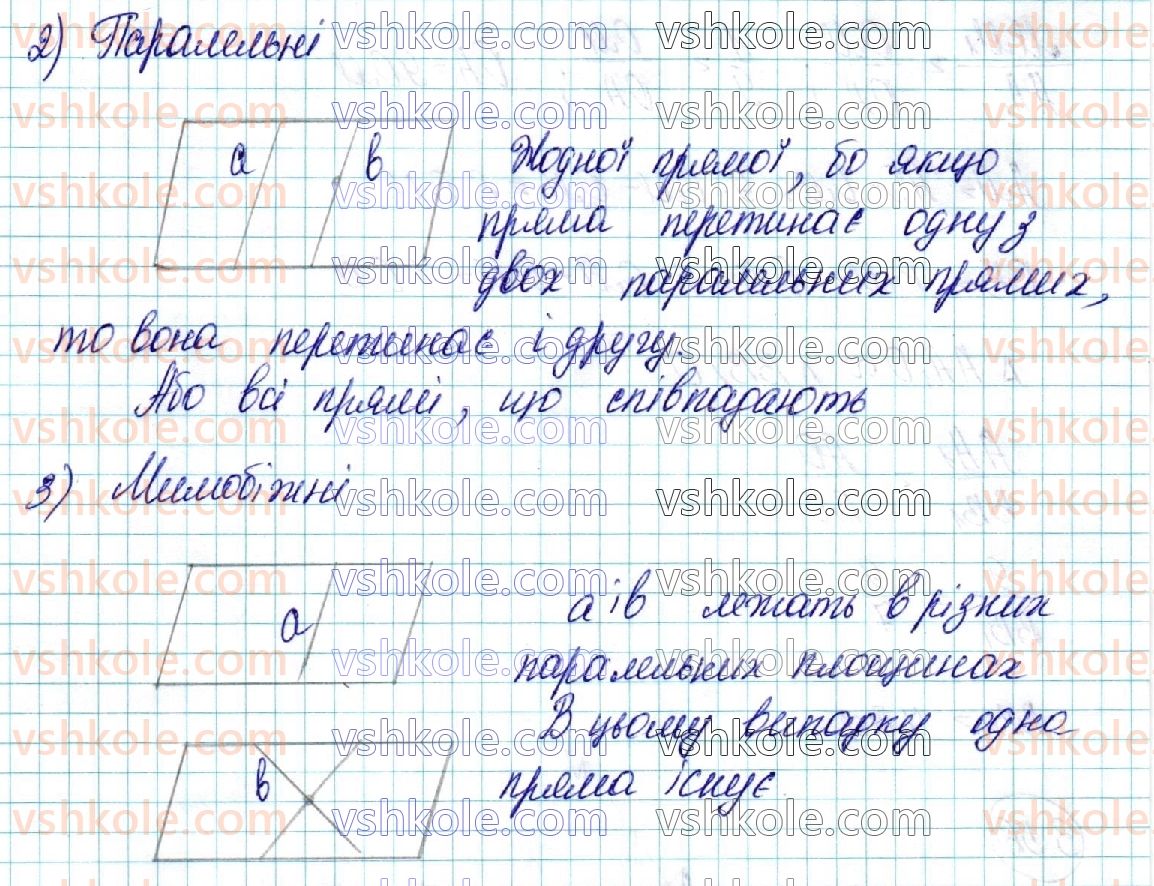 2) Паралельні
а в Жодної прямої, бо якщо
пряма перетинає одну з
двох паралельних прямих,
то вона перетинає і другу.
Або всі прямі, що співпадають
3) Мимобіжні
а
а і в лежать в різних
паралельних площинах
В цьому випадку одна
в
пряма існує
vshkole.com